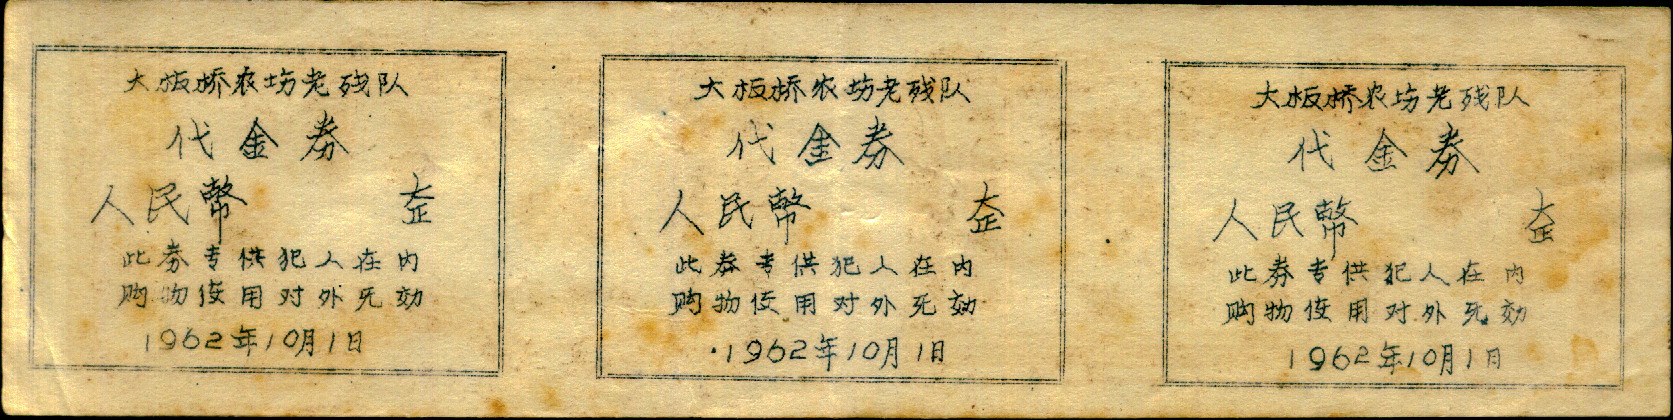 大板桥农场老残队
代金劵
人民幣
此劵专供犯人在内
购物使用对外无効
1962年10月1日
大板桥农场老残队
代金劵
人民幣
此劵专供犯人在内
购物使用对外无効
1962年10月1日
大板桥农场老残队
代金劵
人民幣
此劵专供犯人在内
购物使用对外无効
1962年10月1日